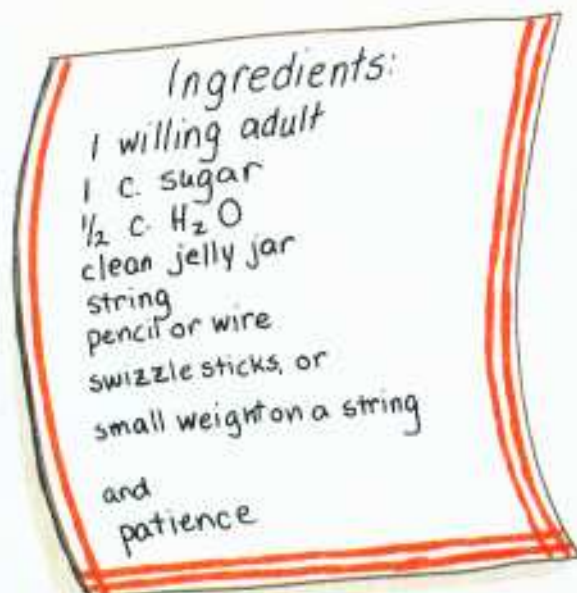 Ingredients:
1 willing adult
1 c. sugar
½ c. H₂O
clean jelly jar
string
pencil or wire
swizzle sticks, or
small weight on a string
and
patience